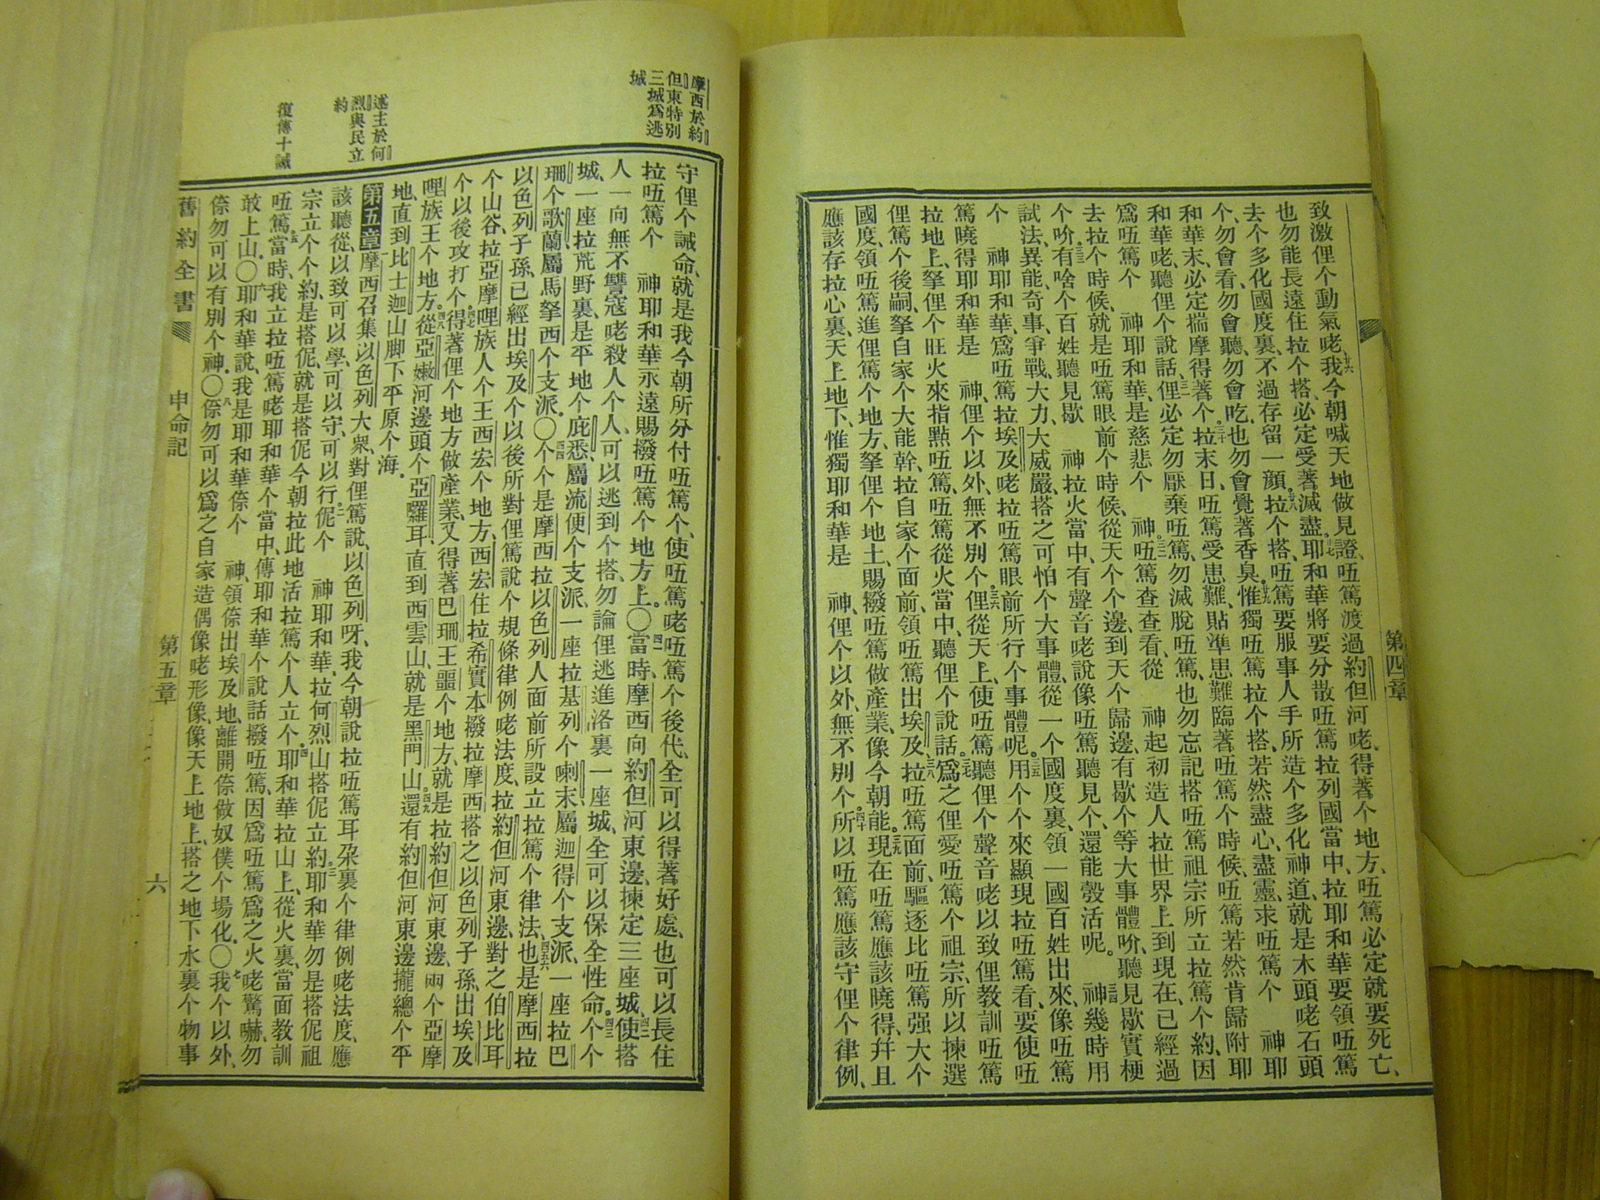 第四章
致激俚个動氣咾我今朝喊天地做見證、㕶篤渡過約但河咾、得著个地方、㕶篤必定就要死亡、
也勿能長遠住拉个搭、必定受著滅盡、耶和華將要分散㕶篤拉列國當中、拉耶和華要領㕶篤
去个多化國度裏、不過存留一顔、拉个搭、㕶篤要服事人手所造个多化神道、就是木頭咾石頭
个、勿會看、勿會聽、勿會吃、也勿會覺著香臭、惟獨㕶篤拉个搭、若然盡心、盡靈、求㕶篤个 神耶
和華末、必定揣摩得著个、拉末日、㕶篤受患難、貼準患難臨著㕶篤个時候、㕶篤若然肯歸附耶
和華咾、聽俚个說話、俚必定勿厭棄㕶篤、勿滅脫㕶篤、也勿忘記搭㕶篤祖宗所立拉篤个約、因
爲㕶篤个 神耶和華、是慈悲个 神、㕶篤查查看、從 神起初造人拉世界上、到現在、已經過
去拉个時候、就是㕶篤眼前个時候、從天个个邊、到天个歸邊、有歇个等大事體吤、聽見歇實梗
个吤、有啥个百姓、聽見歇 神拉火當中、有聲音咾說、像㕶篤聽見个、還能彀活呢。 神幾時用
試法、異能、奇事、爭戰、大力、大威嚴、搭之可怕个大事體、從一个國度裏、領一國百姓出來、像㕶篤
个 神耶和華、爲㕶篤拉埃及咾、拉㕶篤眼前所行个事體呢。用个个來顯現拉㕶篤看、要使㕶
篤曉得耶和華是 神、俚个以外、無不別个、俚從天上、使㕶篤聽俚个聲音咾、以致俚教訓㕶篤
拉地上、拏俚个旺火來指點㕶篤、㕶篤從火當中、聽俚个說話。爲之俚愛㕶篤个祖宗、所以揀選
俚篤个後嗣、拏自家个大能幹、拉自家个面前、領㕶篤出埃及、拉㕶篤面前、驅逐比㕶篤强大个
國度、領㕶篤進俚篤个地方、拏俚个地土、賜撥㕶篤做產業、像今朝能、現在㕶篤應該曉得、幷且
應該存拉心裏、天上地下、惟獨耶和華是 神、俚个以外、無不別个、所以㕶篤應該守俚个律例、
摩西於約
但東特別
三城爲逃
城
述主於何
烈與民立
約
復傳十誡
守俚个誡命、就是我今朝所分付㕶篤个、使㕶篤咾㕶篤个後代、全可以得著好處、也可以長住
拉㕶篤个 神耶和華永遠賜撥㕶篤个地方上。〇當時、摩西向約但河東邊、揀定三座城、使搭
人一向無不讐寇咾殺人个人、可以逃到个搭、勿論俚逃進洛裏一座城、全可以保全性命。个个
城、一座拉荒野裏、是平地个庇悉、屬流便个支派、一座拉基列个喇末、屬迦得个支派、一座拉巴
珊个歌蘭、屬馬拏西个支派。〇个个是摩西拉以色列人面前所設立拉篤个律法、也是摩西拉
以色列子孫、已經出埃及个以後、所對俚篤說个規條律例咾法度、拉約但河東邊、對之伯比耳
个山谷、拉亞摩哩族人个王西宏个地方、西宏住拉希實本、撥拉摩西搭之以色列子孫、出埃及
个以後攻打个、得著俚个地方做產業、又得著巴珊王噩个地方、就是拉約但河東邊、兩个亞摩
哩族王个地方。從亞嫩河邊頭个亞囉耳、直到西雲山、就是黑門山。還有約但河東邊攏總个平
地、直到比士迦山脚下平原个海。
第五章 摩西召集以色列大衆、對俚篤說、以色列呀、我今朝說拉㕶篤耳朶裏个律例咾法度、應
該聽從、以致可以學、可以守、可以行伲个 神耶和華、拉何烈山搭伲立約、耶和華勿是搭伲祖
宗立个个約、是搭伲、就是搭伲今朝拉此地活拉篤个人立个、耶和華拉山上、從火裏、當面教訓
㕶篤、當時、我立拉㕶篤咾耶和華个當中、傳耶和華个說話撥㕶篤、因爲㕶篤爲之火咾驚嚇、勿
敢上山。〇耶和華說、我是耶和華㑚个 神、領㑚出埃及地、離開㑚做奴僕个場化。〇我个以外、
㑚勿可以有別个神〇㑚勿可以爲之自家造偶像咾形像、像天上地上、搭之地下水裏个物事
舊約全書 申命記 第五章 六